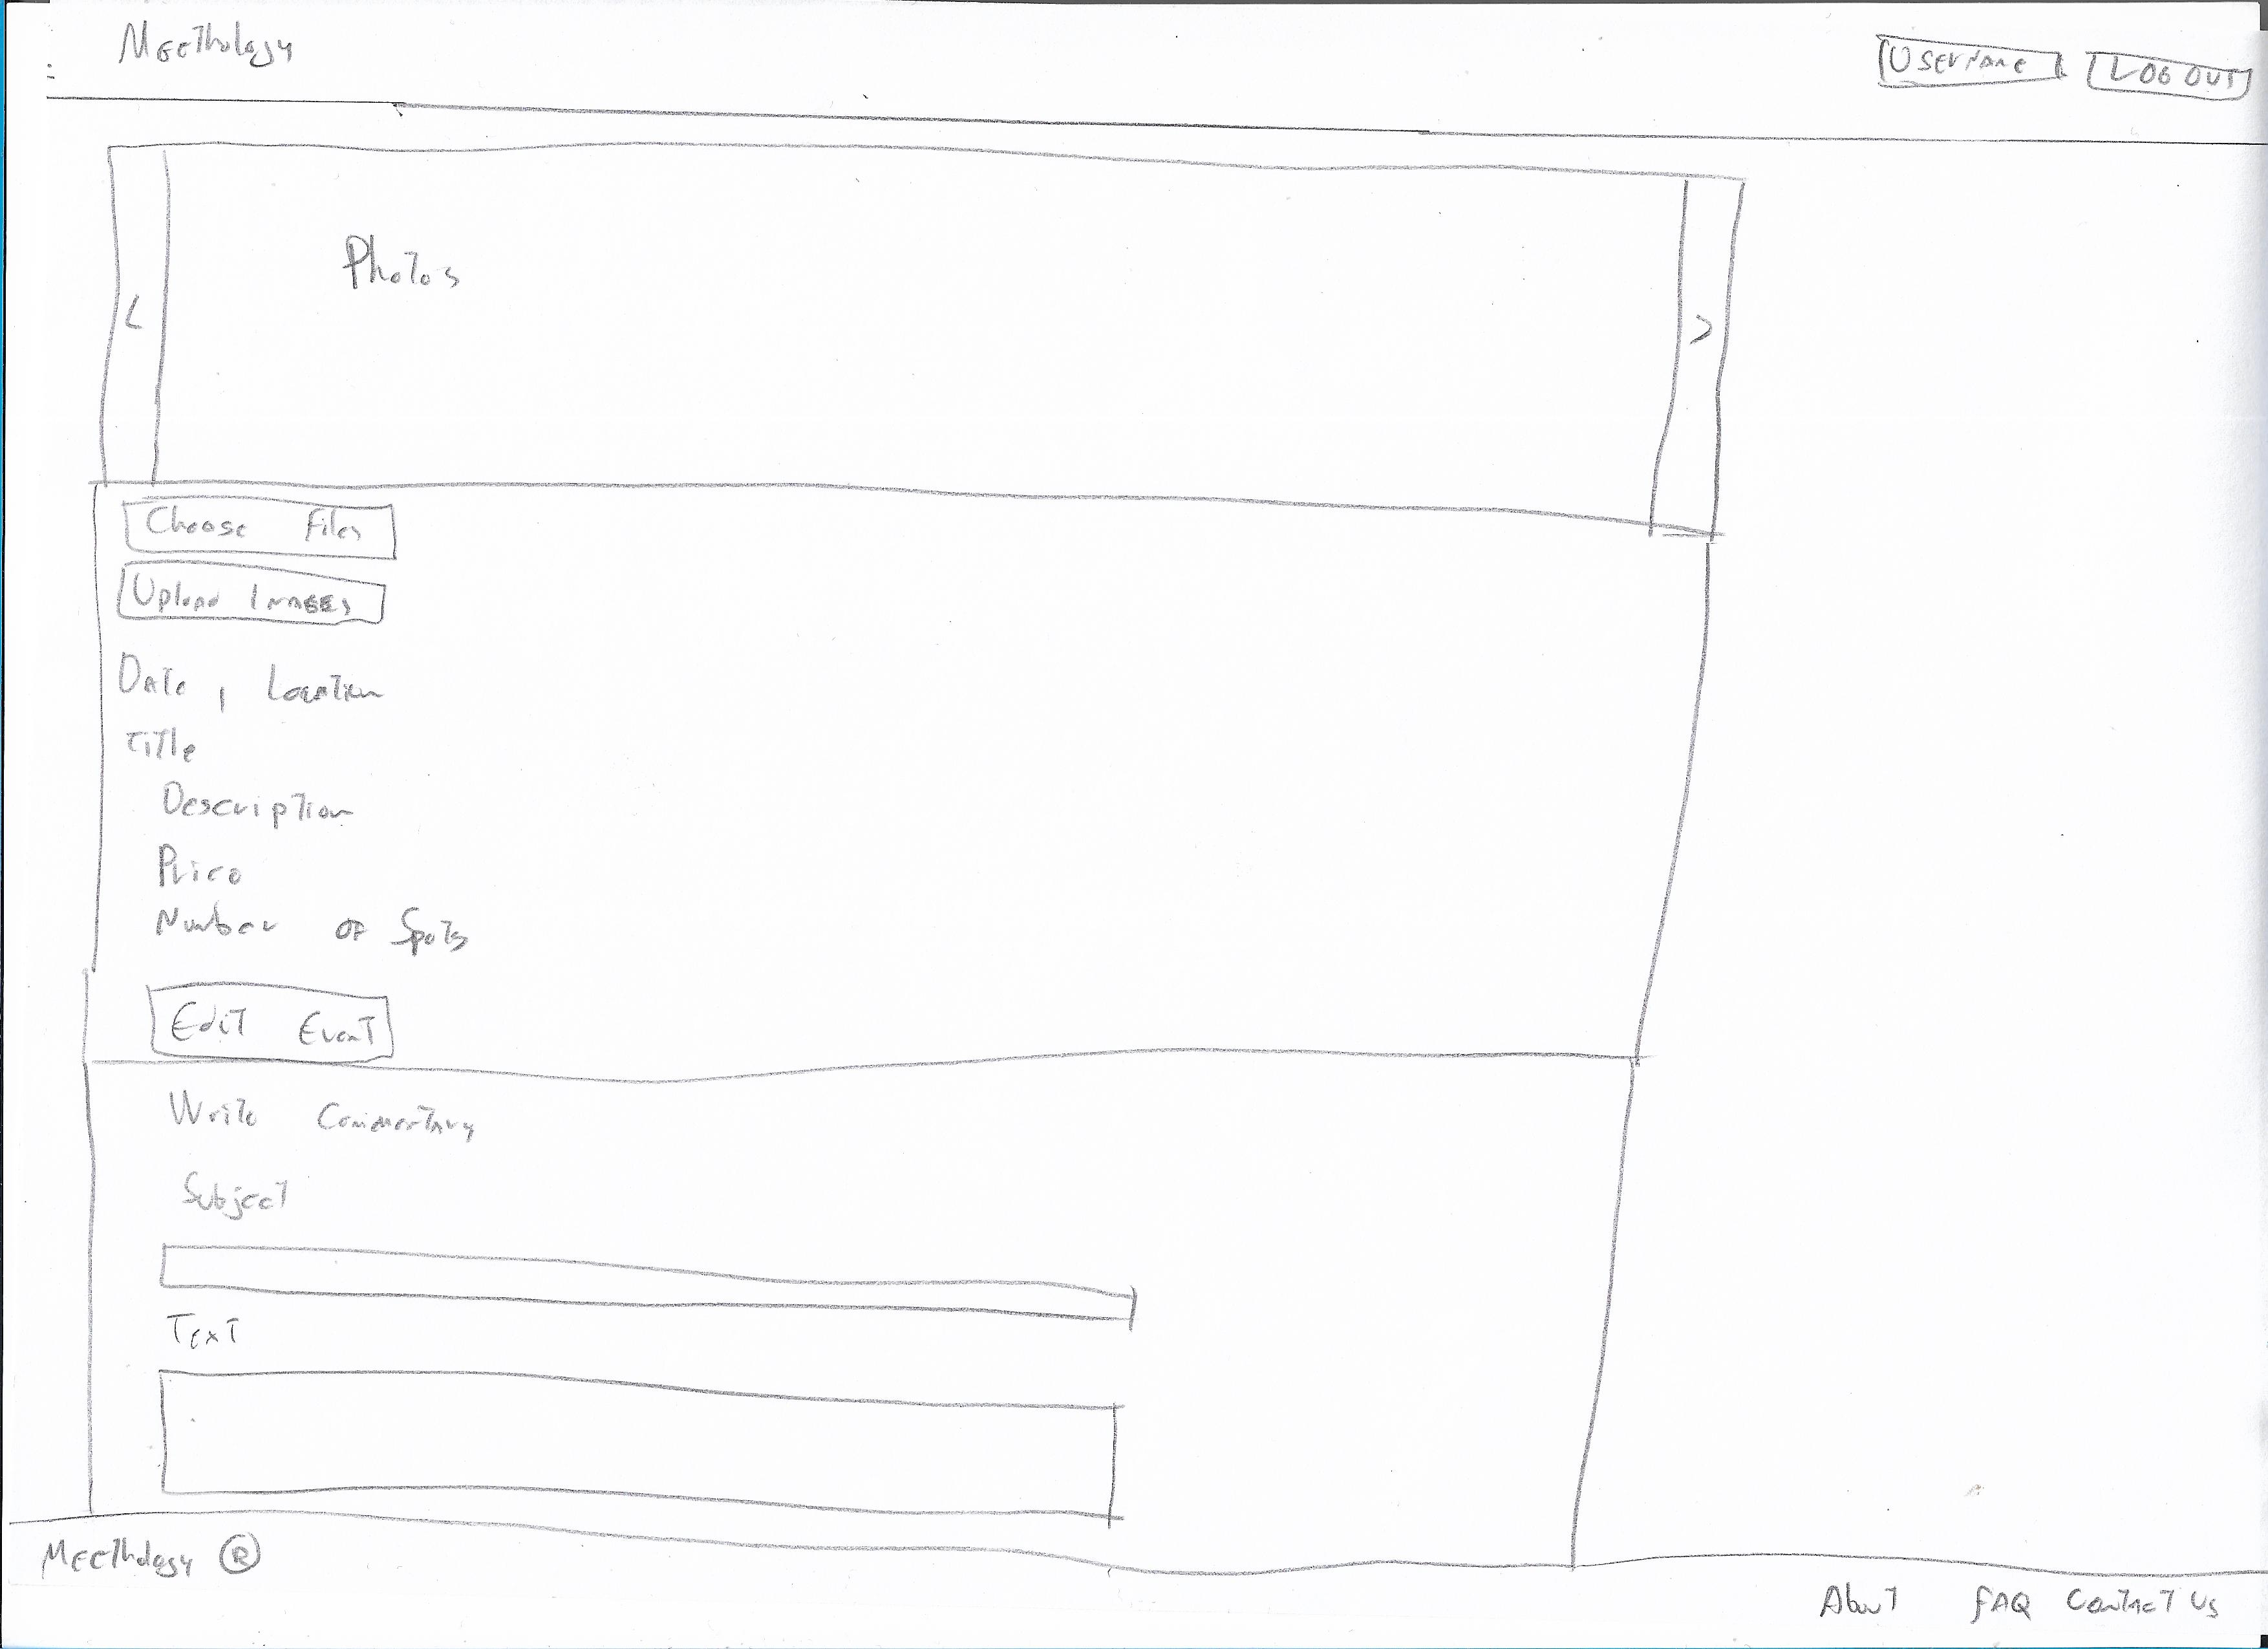 Meethology
Username LOG OUT
Photos
<
>
Choose Files
Upload Images
Date, Location
Title
Description
Price
Number of Spots
Edit Event
Write Commentary
Subject
Text
Meethology ®
About FAQ Contact Us